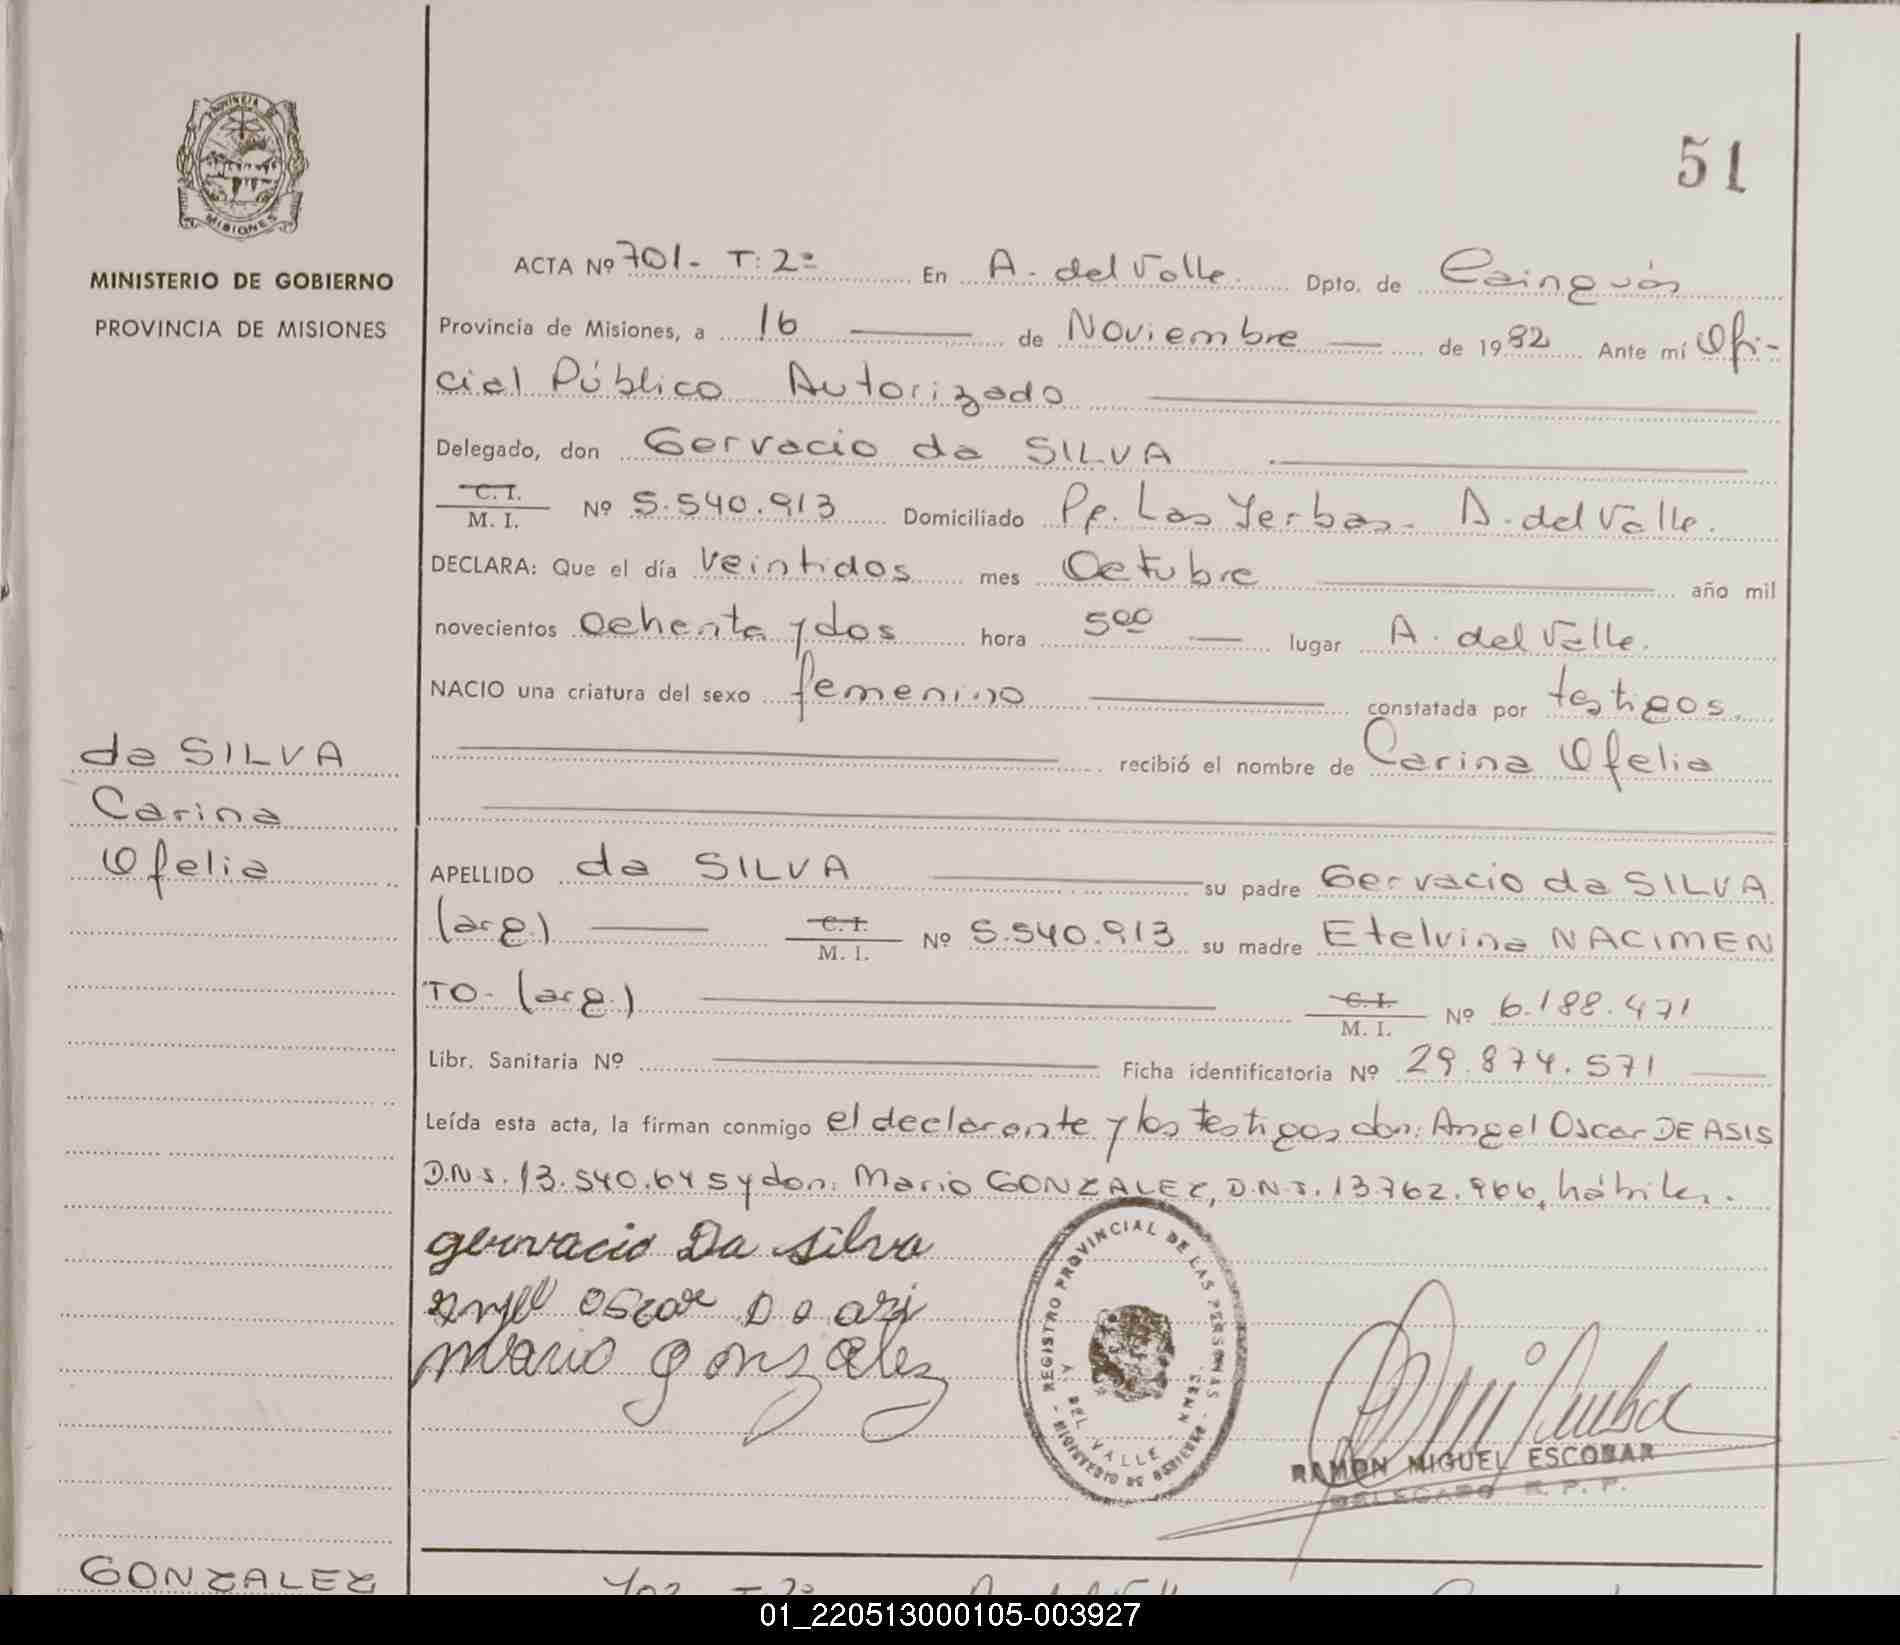 PROVINCIA DE
MISIONES
MINISTERIO DE GOBIERNO
PROVINCIA DE MISIONES
51
ACTA Nº 701- T: 2º En A. del Valle. Dpto. de Cainguás
Provincia de Misiones, a 16 de Noviembre de 1982 Ante mí Ofi-
cial Público Autorizado
Delegado, don Gervacio da SILVA
C. I.
M. I. Nº 5.540.913 Domiciliado Pp. Las Yerbas- A. del Valle.
DECLARA: Que el día veintidos mes Octubre año mil
novecientos ochenta y dos hora 5ºº lugar A. del Valle.
NACIO una criatura del sexo femenino constatada por testigos.
recibió el nombre de Carina Ofelia
da SILVA
Carina
Ofelia
APELLIDO da SILVA su padre Gervacio da SILVA
(arg.) C. I.
M. I. Nº 5.540.913 su madre Etelvina NACIMEN
TO- (arg.) C. I.
M. I. Nº 6.188.471
Libr. Sanitaria Nº Ficha identificatoria Nº 29.874.571
Leída esta acta, la firman conmigo el declarante y los testigos don: Angel Oscar DE ASIS
D.N.I. 13.540.645 y don: Mario GONZALEZ, D.N.I. 13.762.966, hábiles.
gervacio Da silva
angel oscar D a asi
mario gonzalez
REGISTRO PROVINCIAL DE LAS PERSONAS
DEL VALLE
MINISTERIO DE GOBIERNO
RAMON MIGUEL ESCOBAR
DELEGADO R. P. P.
GONZALEZ
01_220513000105-003927